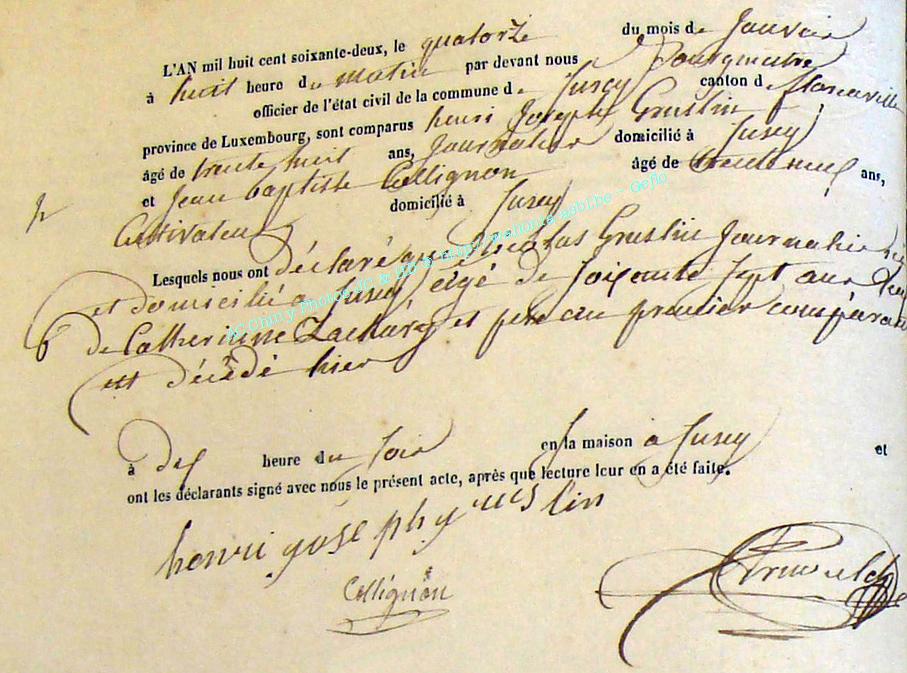 L'AN mil huit cent soixante-deux, le quatorze du mois de Janvier
à huit heure du matin par devant nous Bourgmestre
officier de l'état civil de la commune de Jusey canton d Florenville
province de Luxembourg, sont comparus henri Joseph Guslin
âgé de trente huit ans, Journalier domicilié à Jusey
et Jean baptiste Collignon âgé de trente neuf ans,
Cultivateur domicilié à Jusey
Lesquels nous ont déclaré que Nicolas Guslin Journalier né
et domicilié a Jusey, agé de soixante sept ans
de Catherinne Zachary et pere au premier comparant
est décédé hier
à dix heure du soir en la maison a Jusey et
ont les déclarants signé avec nous le présent acte, après que lecture leur en a été faite.
henri yosephy
Collignon
JC Chiny Photos JC & HB @ http://wallonia-asbl.be - Geflo